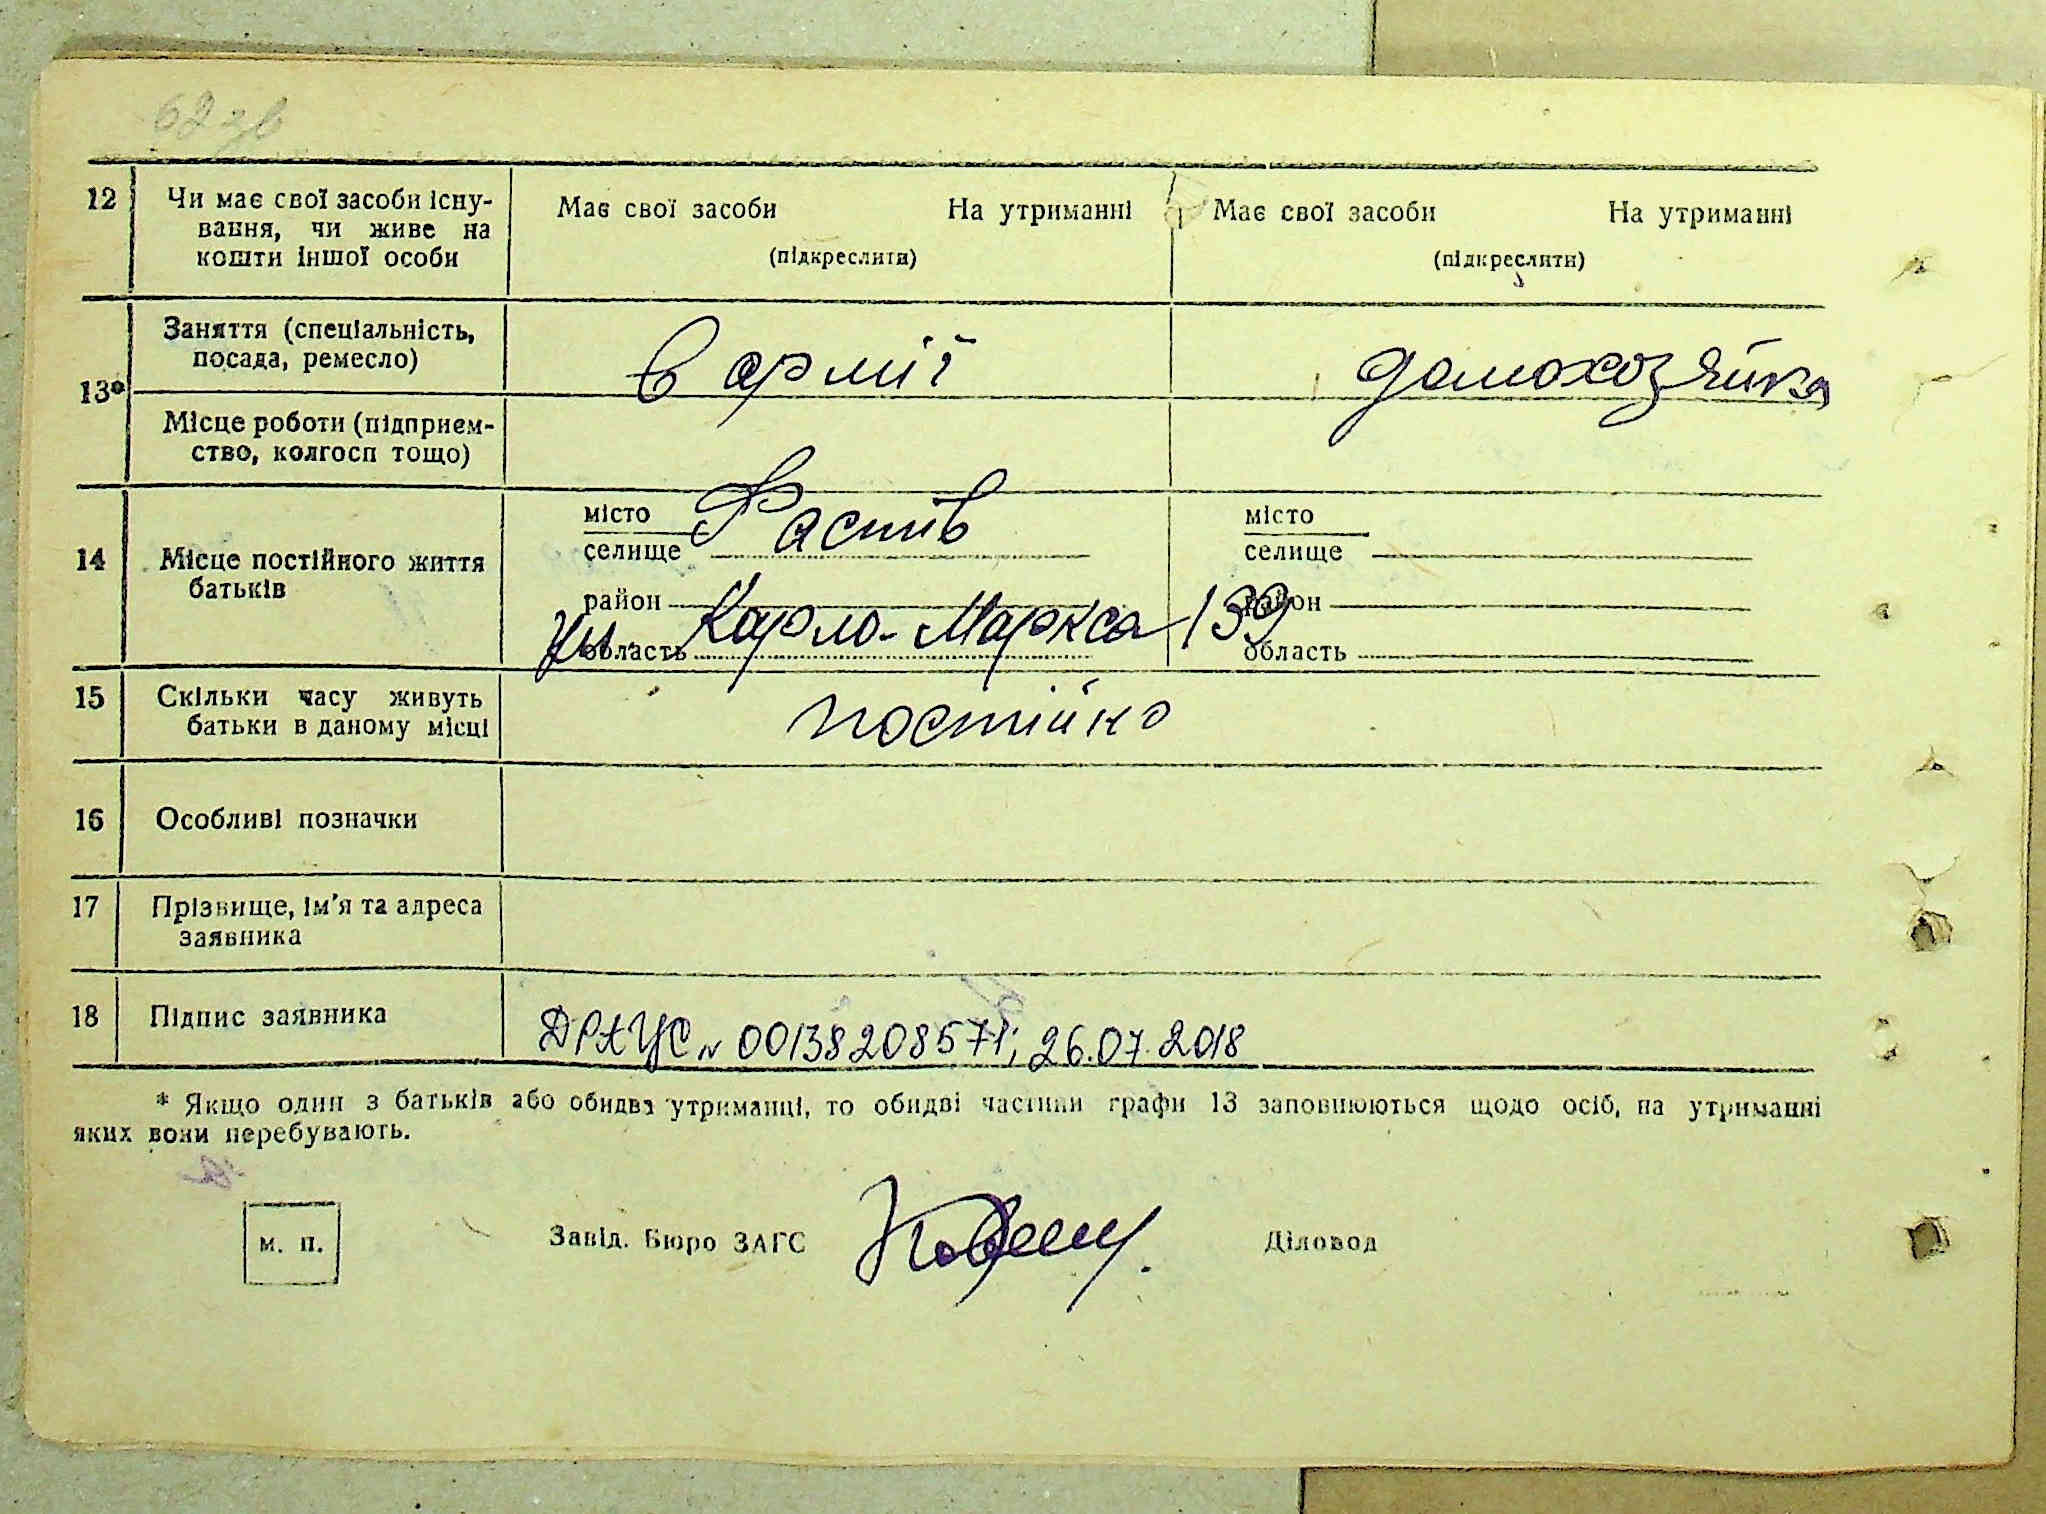 62 зв
12 Чи має свої засоби існу- Має свої засоби На утриманні Має свої засоби На утриманні
вання, чи живе на
кошти іншої особи (підкреслити) (підкреслити)
Заняття (спеціальність, в армії домохозяйка
посада, ремесло)
13*
Місце роботи (підприєм-
ство, колгосп тощо)
місто Фастів місто
14 Місце постійного життя селище селище
батьків район район
ул. Карло-Маркса 139
область область
15 Скільки часу живуть постійно
батьки в даному місці
16 Особливі позначки
17 Прізвище, ім'я та адреса
заявника
18 Підпис заявника ДРАЦС № 00138208571; 26.07.2018
* Якщо один з батьків або обидва утриманці, то обидві частини графи 13 заповнюються щодо осіб, на утриманні
яких вони перебувають.
м. п. Завід. Бюро ЗАГС Діловод